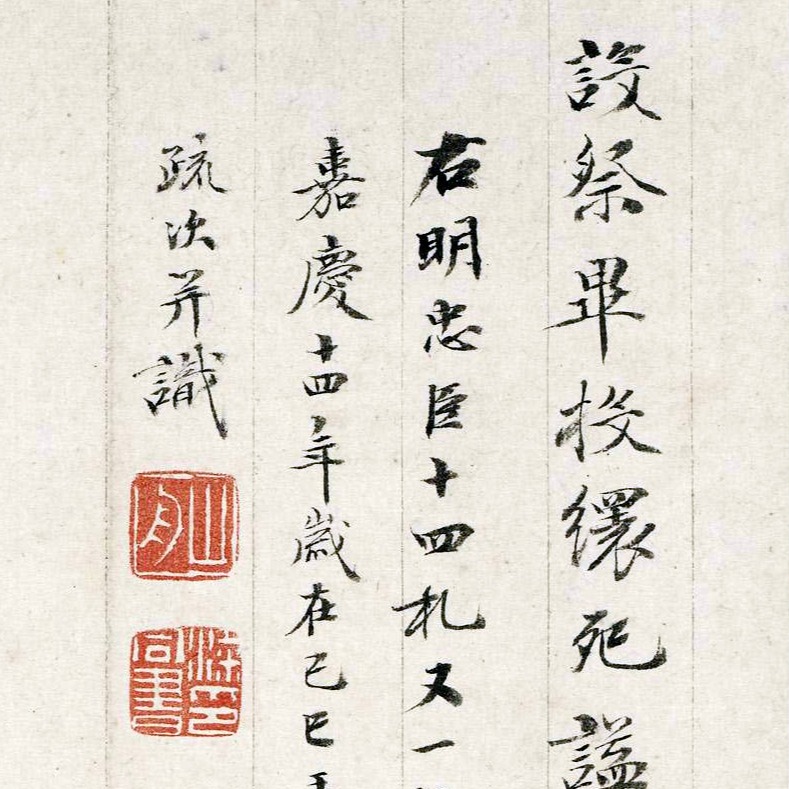 設祭畢投繯死諡
右明忠臣十四札又一
嘉慶十四年歲在己巳
疏次并識